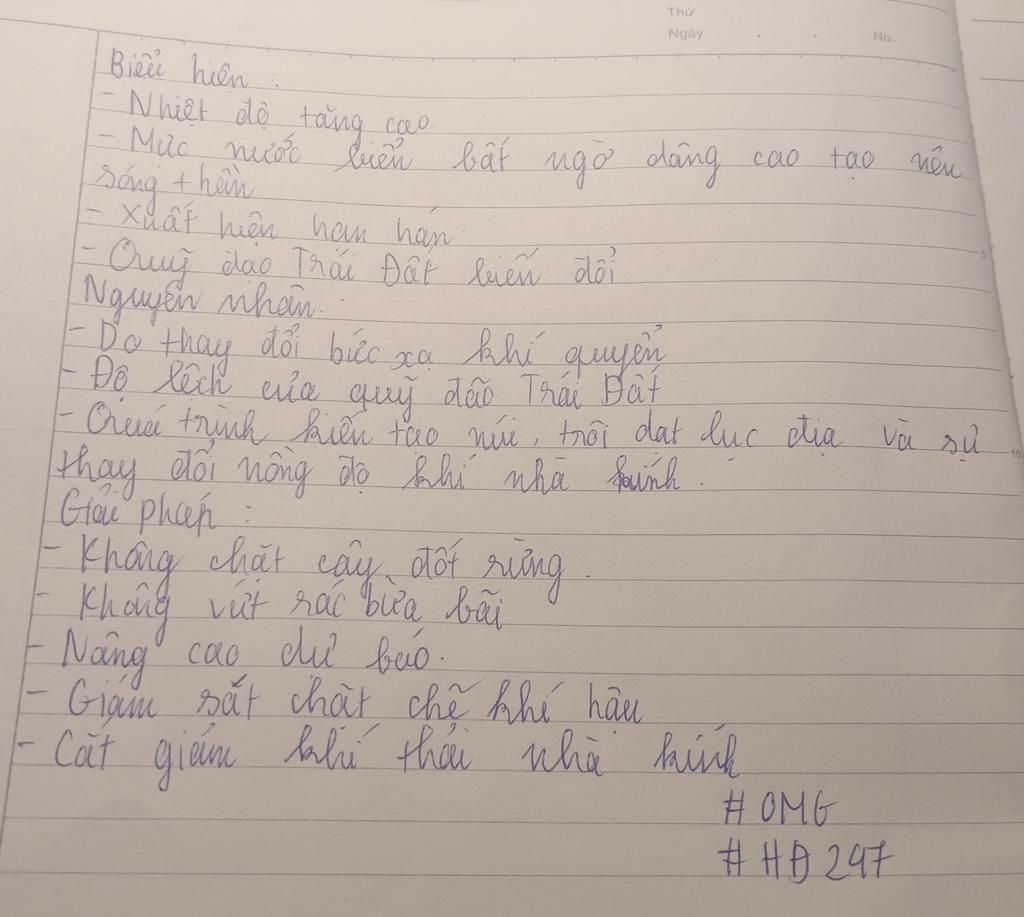 Thứ
Ngày . . No.
Biểu hiện :
- Nhiệt độ tăng cao.
- Mực nước biển bất ngờ dâng cao tạo nên
sóng thần
- Xuất hiện hạn hán
- Quỹ đạo Trái Đất biến đổi
Nguyên nhân :
- Do thay đổi bức xạ khí quyển
- Độ lệch của quỹ đão Trái Đất
- Quá trình kiến tạo núi, trôi dạt lục địa và sự
thay đổi nồng độ khí nhà kính.
Giải pháp :
- Không chặt cây, đốt rừng.
- Không vứt rác bừa bãi
- Nâng cao dự báo.
- Giám sắt chặt chẽ khí hậu
- Cắt giảm khí thải nhà kính
# OMG
# HĐ 247
5
10